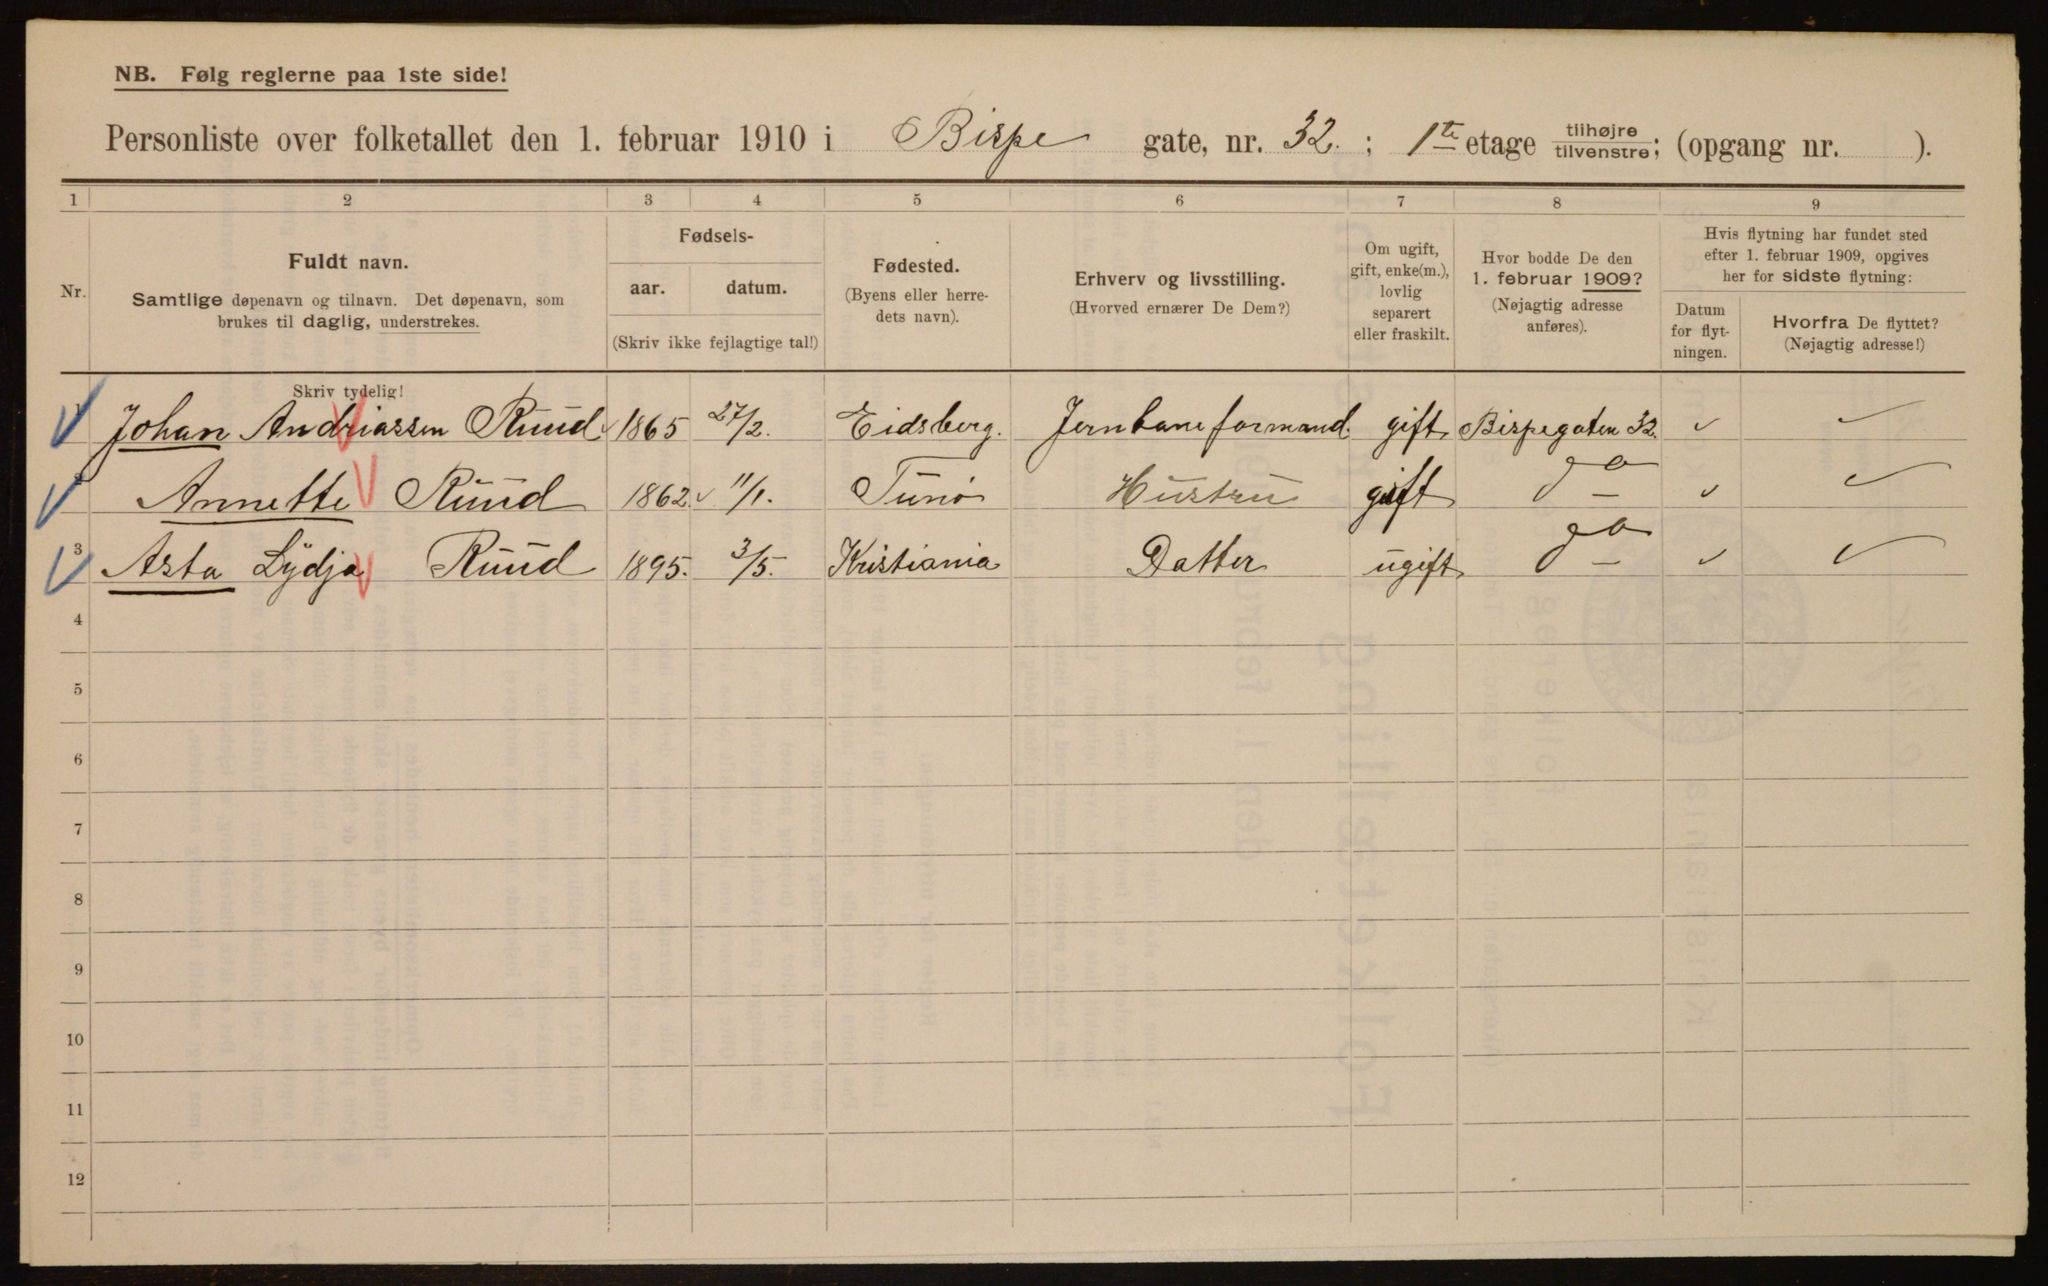 NB. Følg reglerne paa 1ste side!
Personliste over folketallet den 1. februar 1910 i Bispe gate, nr. 32. ; 1te etage tilhøjre tilvenstre; (opgang nr. ).
1 2 3 4 5 6 7 8 9
Nr.
Fuldt navn.
Samtlige døpenavn og tilnavn. Det døpenavn, som
brukes til daglig, understrekes.
Fødsels-
aar. datum.
(Skriv ikke fejlagtige tal!)
Fødested.
(Byens eller herre-
dets navn).
Erhverv og livsstilling.
(Hvorved ernærer De Dem?)
Om ugift,
gift, enke(m.),
lovlig
separert
eller fraskilt.
Hvor bodde De den
1. februar 1909?
(Nøjagtig adresse
anføres).
Hvis flytning har fundet sted
efter 1. februar 1909, opgives
her for sidste flytning:
Datum
for flyt-
ningen.
Hvorfra De flyttet?
(Nøjagtig adresse!)
Skriv tydelig!
1 Johan Andriassen Ruud 1865 27/2. Eidsberg. Jernbaneformand. gift Bispegaten 32.
Annette Ruud 1862. 11/1. Tunø Hustru gift do
3 Asta Lydja Ruud 1895. 3/5. Kristiania Datter ugift do
4
5
6
7
8
9
10
11
12